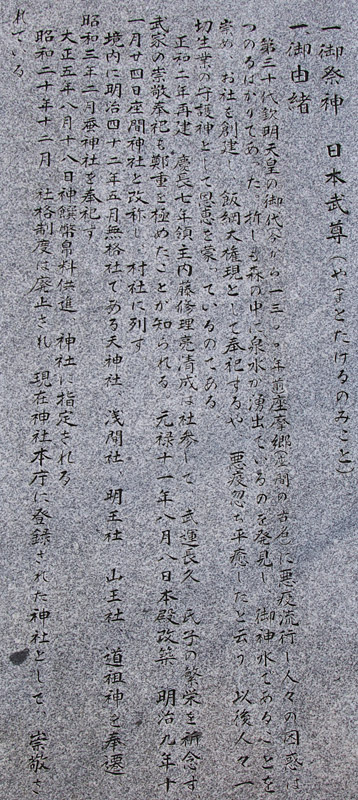 一御祭神　日本武尊（やまとたけるのみこと）
一御由緒
第三十代欽明天皇の御代今から一三〇〇年前座摩郷（座間の古名）に悪疫流行し人々の困惑は
つのるばかりであった　折しも森の中に泉水が湧出ているのを発見し　御神水であることを
崇め、お社を創建し　飯綱大権現として奉祀するや　悪疫忽ち平癒したと云う　以後人々一
切生業の守護神として恩恵を蒙っているのである
正和二年再建　慶長七年領主内藤修理亮清成は社参して　武運長久　氏子の繁栄を祈念す
武家の崇敬奉祀も鄭重を極めたことが知られる　元禄十一年八月八日本殿改築　明治九年十
一月廿四日座間神社と改称し　村社に列す
境内に明治四十二年五月無格社である天神社、浅間社　明王社　山王社、道祖神を奉遷
昭和三年二月蚕神社を奉祀す
大正五年八月十八日神饌幣帛料供進、神社に指定される
昭和二十年十二月　社格制度は廃止され　現在神社本庁に登録された神社として、崇敬さ
れている